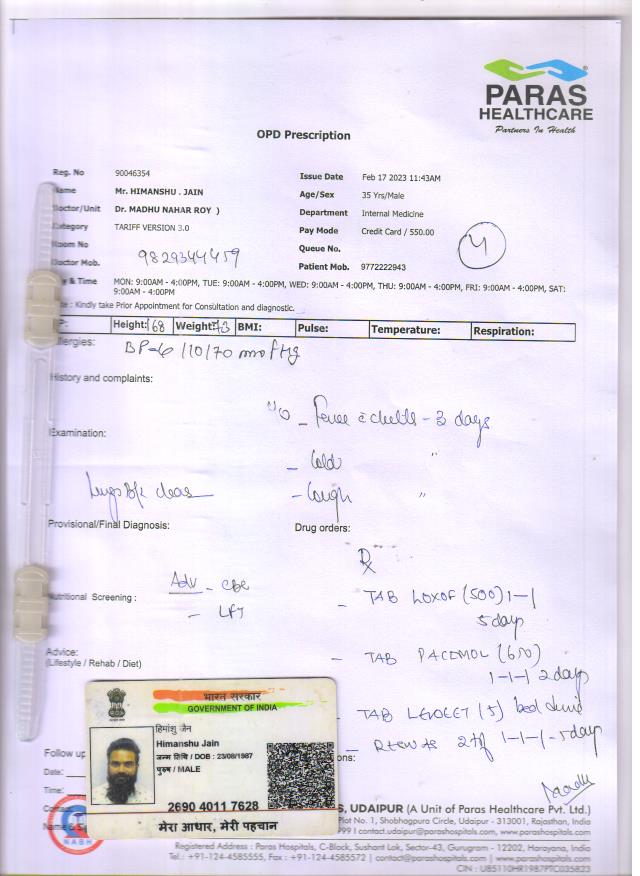 PARAS
HEALTHCARE
Partners In Health
OPD Prescription
Reg. No 90046354
Issue Date Feb 17 2023 11:43AM
Name Mr. HIMANSHU . JAIN
Age/Sex 35 Yrs/Male
Doctor/Unit Dr. MADHU NAHAR ROY )
Department Internal Medicine
Category TARIFF VERSION 3.0
Pay Mode Credit Card / 550.00
Room No
Queue No.
4
Doctor Mob. 9829344459
Patient Mob. 9772222943
y & Time MON: 9:00AM - 4:00PM, TUE: 9:00AM - 4:00PM, WED: 9:00AM - 4:00PM, THU: 9:00AM - 4:00PM, FRI: 9:00AM - 4:00PM, SAT:
9:00AM - 4:00PM
: Kindly take Prior Appointment for Consultation and diagnostic.
P: Height: 168 Weight: 73 BMI: Pulse: Temperature: Respiration:
llergies:
110/70 mmHg
History and complaints:
- 3 days
Examination:
- Cold "
Lungs B/L clear
- Cough "
Provisional/Final Diagnosis:
Drug orders:
Rx
Adv - CBC
Nutritional Screening :
- LFT
- TAB LOXOF (500) 1-1
5 day
Advice:
(Lifestyle / Rehab / Diet)
- TAB PACIMOL (650)
1-1-1 2 days
- TAB (5) bed time
- 2 tsf 1-1-1-5 days
ons:
Follow up
Date:
Time:
भारत सरकार
GOVERNMENT OF INDIA
हिमांशु जैन
Himanshu Jain
जन्म तिथि / DOB : 23/08/1987
पुरुष / MALE
2690 4011 7628
मेरा आधार, मेरी पहचान
NABH
S, UDAIPUR (A Unit of Paras Healthcare Pvt. Ltd.)
Plot No. 1, Shobhagpura Circle, Udaipur - 313001, Rajasthan, India
999 I contact.udaipur@parashospitals.com, www.parashospitals.com
Registered Address : Paras Hospitals, C-Block, Sushant Lok, Sector-43, Gurugram - 12202, Harayana, India
Tel.: +91-124-4585555, Fax: +91-124-4585572 | contact@parashospitals.com | www.parashospitals.com
CIN : U85110HR1987PTC035823